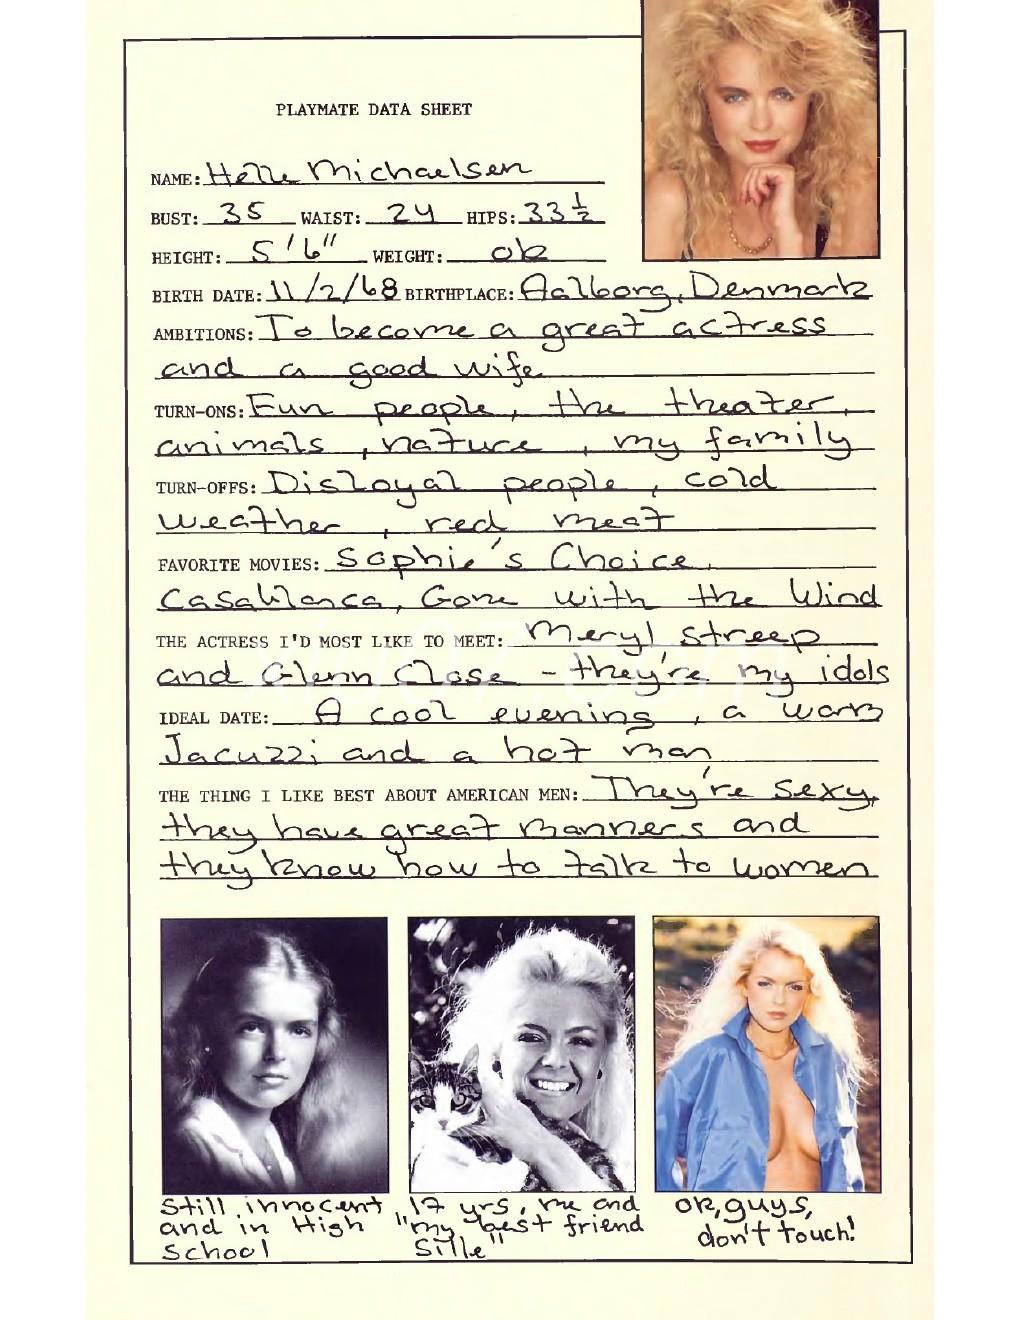 PLAYMATE DATA SHEET
NAME: Helle Michaelsen
BUST: 35 WAIST: 24 HIPS: 33 ½
HEIGHT: 5'6" WEIGHT: ok
BIRTH DATE: 11/2/68 BIRTHPLACE: Aalborg, Denmark
AMBITIONS: To become a great actress
and a good wife
TURN-ONS: Fun people, the theater,
animals, nature, my family
TURN-OFFS: Disloyal people, cold
weather, red meat
FAVORITE MOVIES: Sophie's Choice,
Casablanca, Gone with the Wind
THE ACTRESS I'D MOST LIKE TO MEET: Meryl Streep
and Glenn Close - they're my idols
IDEAL DATE: A cool evening, a warm
Jacuzzi and a hot man
THE THING I LIKE BEST ABOUT AMERICAN MEN: They're sexy,
they have great manners and
they know how to talk to women
Still innocent
and in High
School
17 yrs, me and
"my best friend
Sille"
ok, guys,
don't touch!